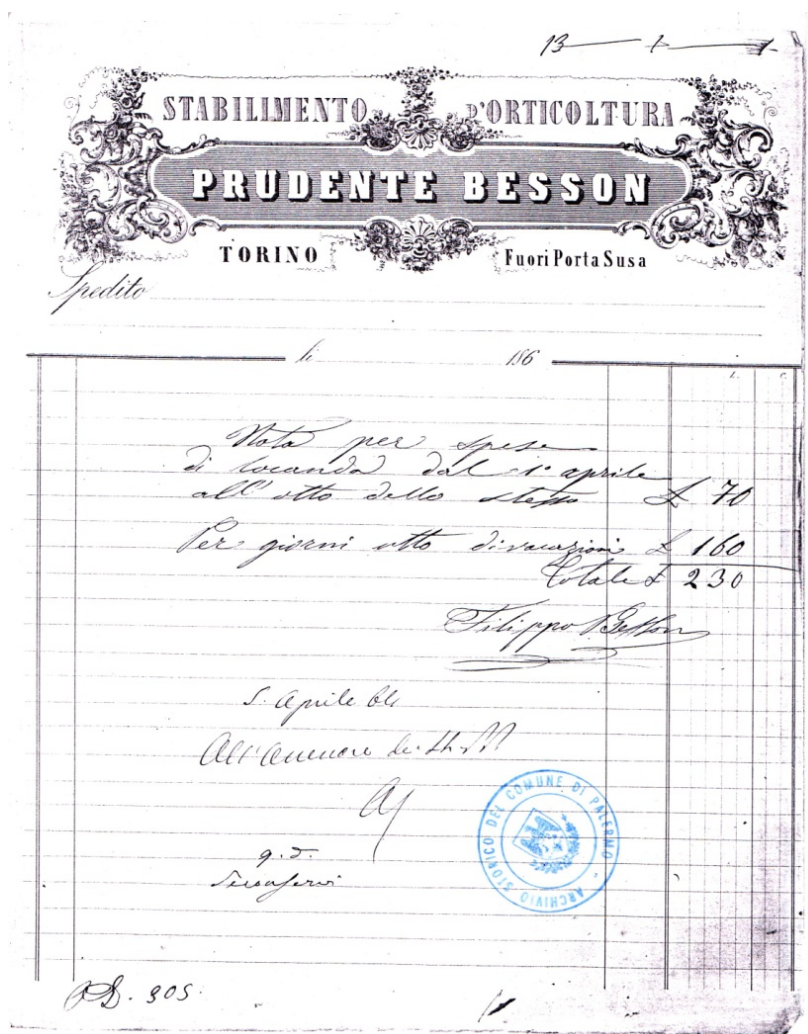 13
STABILIMENTO D'ORTICOLTURA
PRUDENTE BESSON
TORINO Fuori Porta Susa
Spedito
li 186
L. C.
Nota per spese
di locanda dal 1° aprile
all'otto dello stesso £ 70
Per giorni otto di vacazioni £ 160
Totale £ 230
Filippo Besson
Aprile
All'
q. d.
ARCHIVIO STORICO DEL COMUNE DI PALERMO
905.